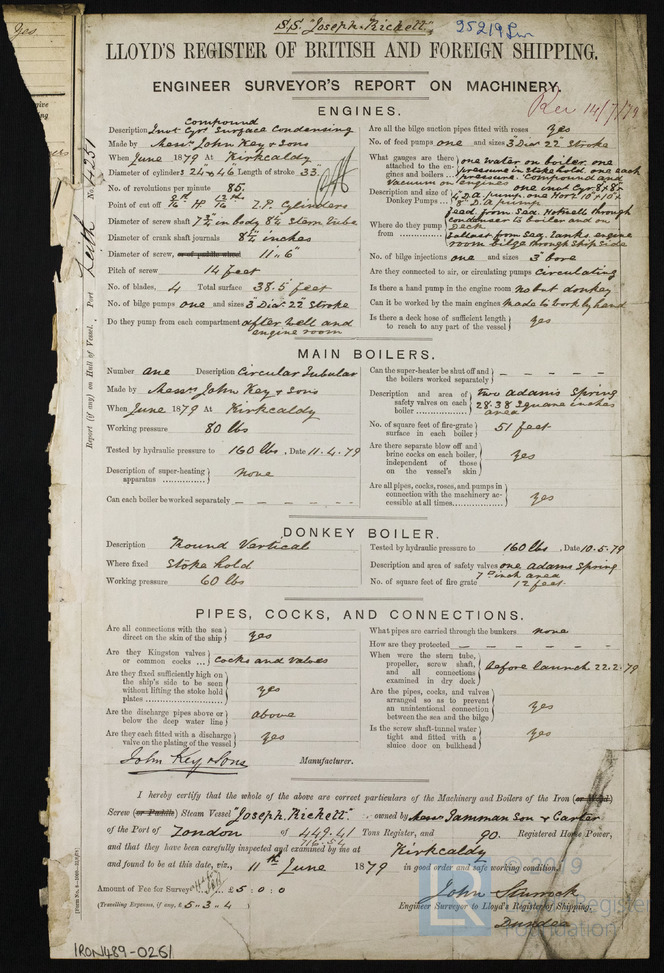 S.S. "Joseph Rickett"
25219 Lrn
LLOYD'S REGISTER OF BRITISH AND FOREIGN SHIPPING.
ENGINEER SURVEYOR'S REPORT ON MACHINERY.
Rec 14/7/79
Report (if any) on Hull of Vessel. Port Leith No. 4251
ENGINES.
Description Invt Cyr Compound Surface Condensing
Made by Messrs John Key & sons
When June 1879 At Kirkcaldy
Diameter of cylinders 24 & 46 Length of stroke 33"
No. of revolutions per minute 85.
Point of cut off H.P. L.P. Cylinders
Diameter of screw shaft 7¾ in body 8¼ Stern tube
Diameter of crank shaft journals 8¼ inches
Diameter of screw, or of paddle wheel 11' 6"
Pitch of screw 14 feet
No. of blades, 4 Total surface 38.5 feet
No. of bilge pumps one and sizes 3" Dia. 22" Stroke
Do they pump from each compartment after well and engine room
Are all the bilge suction pipes fitted with roses yes
No. of feed pumps one and sizes 3" Dia 22" Stroke
What gauges there are attached to the engines and boilers one water on boiler, one pressure in stokehold, one each pressure. Compound and Vacuum on engine
Description and size of Donkey Pumps one invt Cyr 8 x 8 x D.A. pump one Horl 10" x 10" x 8" D.A. pump
Where do they pump from feed from Sea, Hotwell through condenser to boiler and on Deck
Ballast from Sea, Tanks, engine room bilge through Ship Side
No. of bilge injections one and sizes 3" bore
Are they connected to air, or circulating pumps Circulating
Is there a hand pump in the engine room no but donkey
Can it be worked by the main engines made to work by hand
Is there a deck hose of sufficient length to reach to any part of the vessel yes
MAIN BOILERS.
Number one Description Circular Tubular
Made by Messrs John Key & Sons
When June 1879 At Kirkcaldy
Working pressure 80 lbs
Tested by hydraulic pressure to 160 lbs. Date 11.4.79
Description of super-heating apparatus none
Can each boiler be worked separately
Can the super-heater be shut off and the boilers worked separately
Description and area of safety valves on each boiler two adams Spring 28.38 Square inches area
No. of square feet of fire-grate surface in each boiler 51 feet
Are there separate blow off and brine cocks on each boiler, independent of those on the vessel's skin yes
Are all pipes, cocks, roses, and pumps in connection with the machinery accessible at all times yes
DONKEY BOILER.
Description Round Vertical
Where fixed Stoke hold
Working pressure 60 lbs
Tested by hydraulic pressure to 160 lbs. Date 10.5.79
Description and area of safety valves one adams Spring 7 □ inch area
No. of square feet of fire grate 12 feet.
PIPES, COCKS, AND CONNECTIONS.
Are all connections with the sea direct on the skin of the ship yes
Are they Kingston valves or common cocks cocks and valves
Are they fixed sufficiently high on the ship's side to be seen without lifting the stoke hold plates yes
Are the discharge pipes above or below the deep water line above
Are they each fitted with a discharge valve on the plating of the vessel yes
What pipes are carried through the bunkers none
How are they protected
When were the stern tube, propeller, screw shaft, and all connections examined in dry dock before launch 22.2.79
Are the pipes, cocks, and valves arranged so as to prevent an unintentional connection between the sea and the bilge yes
Is the screw shaft-tunnel water tight and fitted with a sluice door on bulkhead yes
John Key & Sons Manufacturer.
I hereby certify that the whole of the above are correct particulars of the Machinery and Boilers of the Iron (or Wood)
Screw (or Paddle) Steam Vessel "Joseph Rickett" owned by Messrs Jamman Son & Carter
of the Port of London of 449.41 Tons Register, and 90. Registered Horse Power,
716.54
and that they have been carefully inspected and examined by me at Kirkcaldy
and found to be at this date, viz., 11th June 1879 in good order and safe working condition.
Amount of Fee for Survey £5:0:0
(Travelling Expenses, if any, £5"3"4)
John Sturrock
Engineer Surveyor to Lloyd's Register of Shipping,
Dundee
IRON489-0261